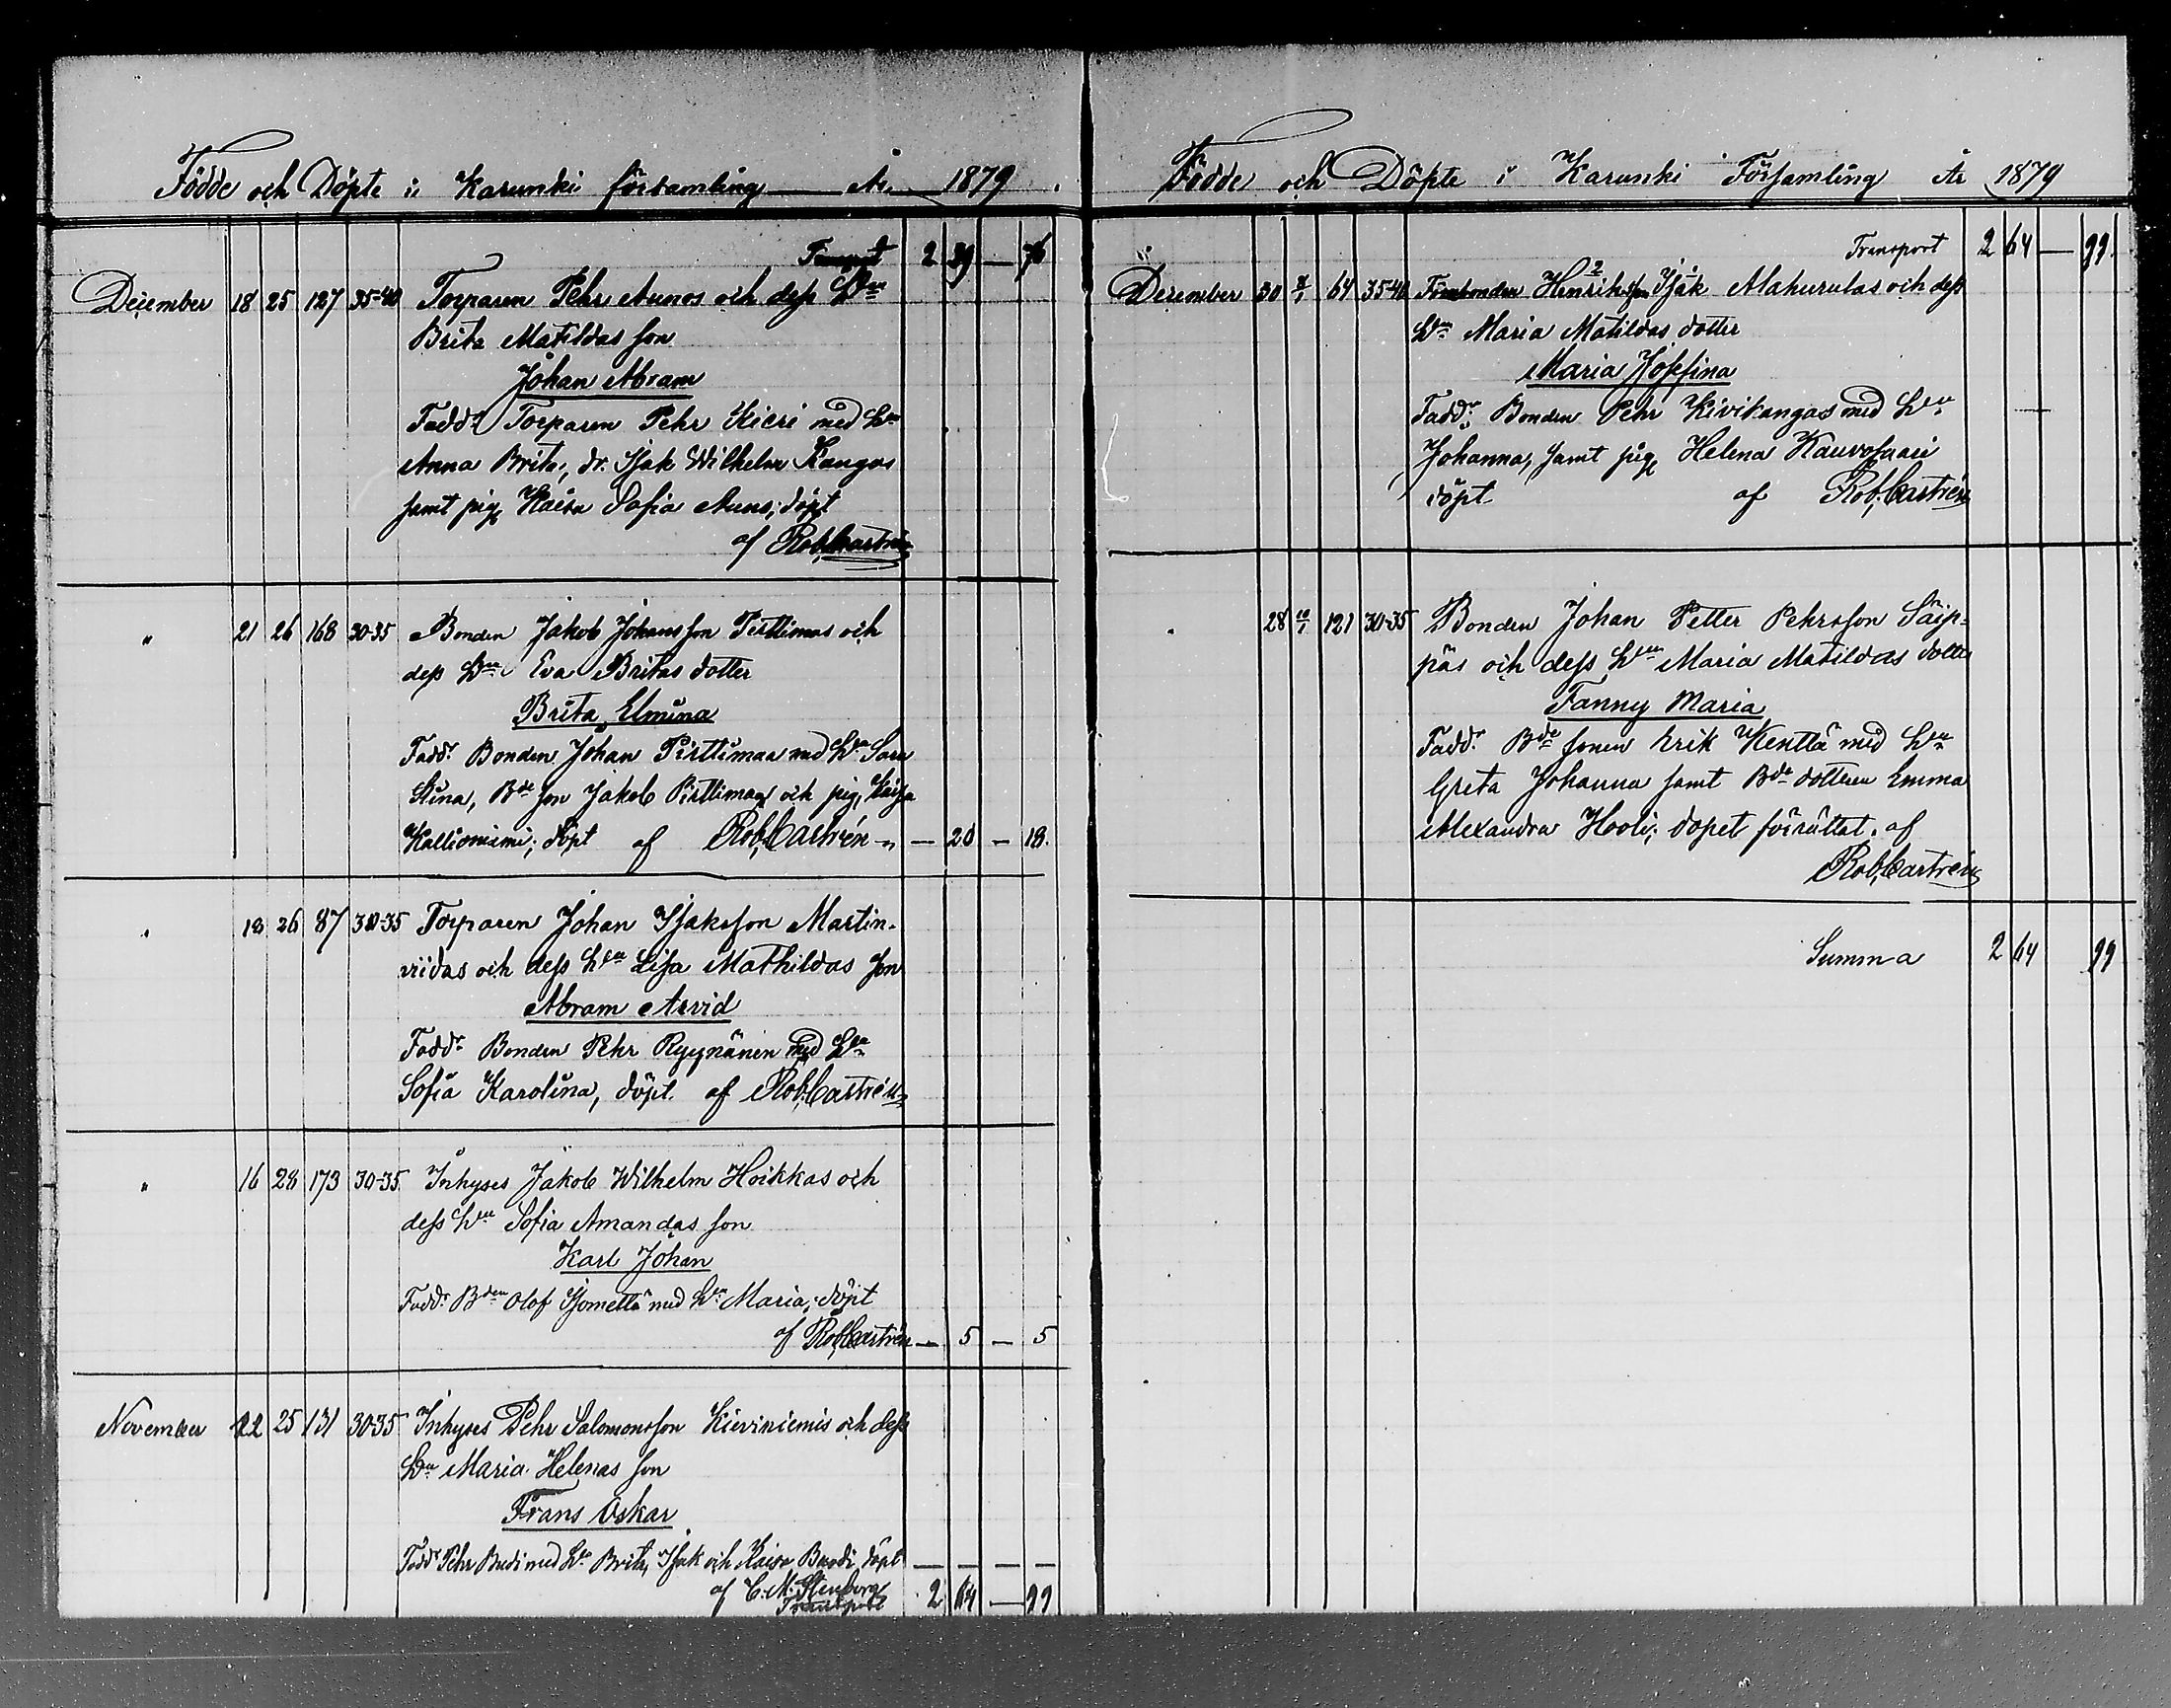 Födde och Döpte i Karunki församling År 1879.
Transport 2 39 — 76
December 18 25 127 35-40 Torparen Pehr Aunos och dess Hu
Brita Matildas son
Johan Abram
Fadd: Torparen Pehr Kieri med Hu
Anna Brita, dr. Isak Wilhelm Kangas
samt pig. Kaisa Sofia Auno; döpt
af Rob. Castrén
" 21 26 168 30-35 Bonden Jakob Johansson Pirttimaas och
dess Hu Eva Britas dotter
Brita Elmina
Fadd: Bonden Johan Pirttimaa med Hu Sara
Stina, Bde son Jakob Pirttimaa och pig. Kaisa
Kallioniemi; döpt af Rob. Castrén — 20 — 18.
" 18 26 87 30-35 Torparen Johan Isaksson Martin-
viidas och dess Hu Lisa Mathildas son
Abram Arvid
Fadd: Bonden Pehr Ryynänen med Hu
Sofia Karolina, döpt af Rob. Castrén
" 16 28 173 30-35 Inhyses Jakob Wilhelm Hoikkas och
dess Hu Sofia Amandas son
Karl Johan
Fadd: Bden Olof med Hu Maria; döpt
af Rob. Castrén — 5 — 5
November 22 25 131 30-35 Inhyses Pehr Salomonsson Kieriniemis och dess
Hu Maria Helenas son
Frans Oskar
Fadd: Pehr med Hu Brita, Isak och Kaisa döpt — — — —
af C. M. Stenberg
Transport 2 64 — 99
Födde och Döpte i Karunki Församling År 1879
Transport 2 64 — 99.
December 30 2/1 64 35-40 Henriksson Isak Mahurulas och dess
Hu Maria Matildas dotter
Maria Josefina
Fadd: Bonden Pehr Kivikangas med Hu
Johanna, samt pig. Helena Kauvosaari
döpt af Rob. Castrén
" 28 10/1 121 30-35 Bonden Johan Petter Pehrsson Säip-
päs och dess Hu Maria Matildas dotter
Fanny Maria
Fadd: Bde sonen Erik Kenttä med Hu
Greta Johanna samt Bde dotteren Emma
Alexandra Hooli; dopet förrättat af
Rob. Castrén
Summa 2 64 99